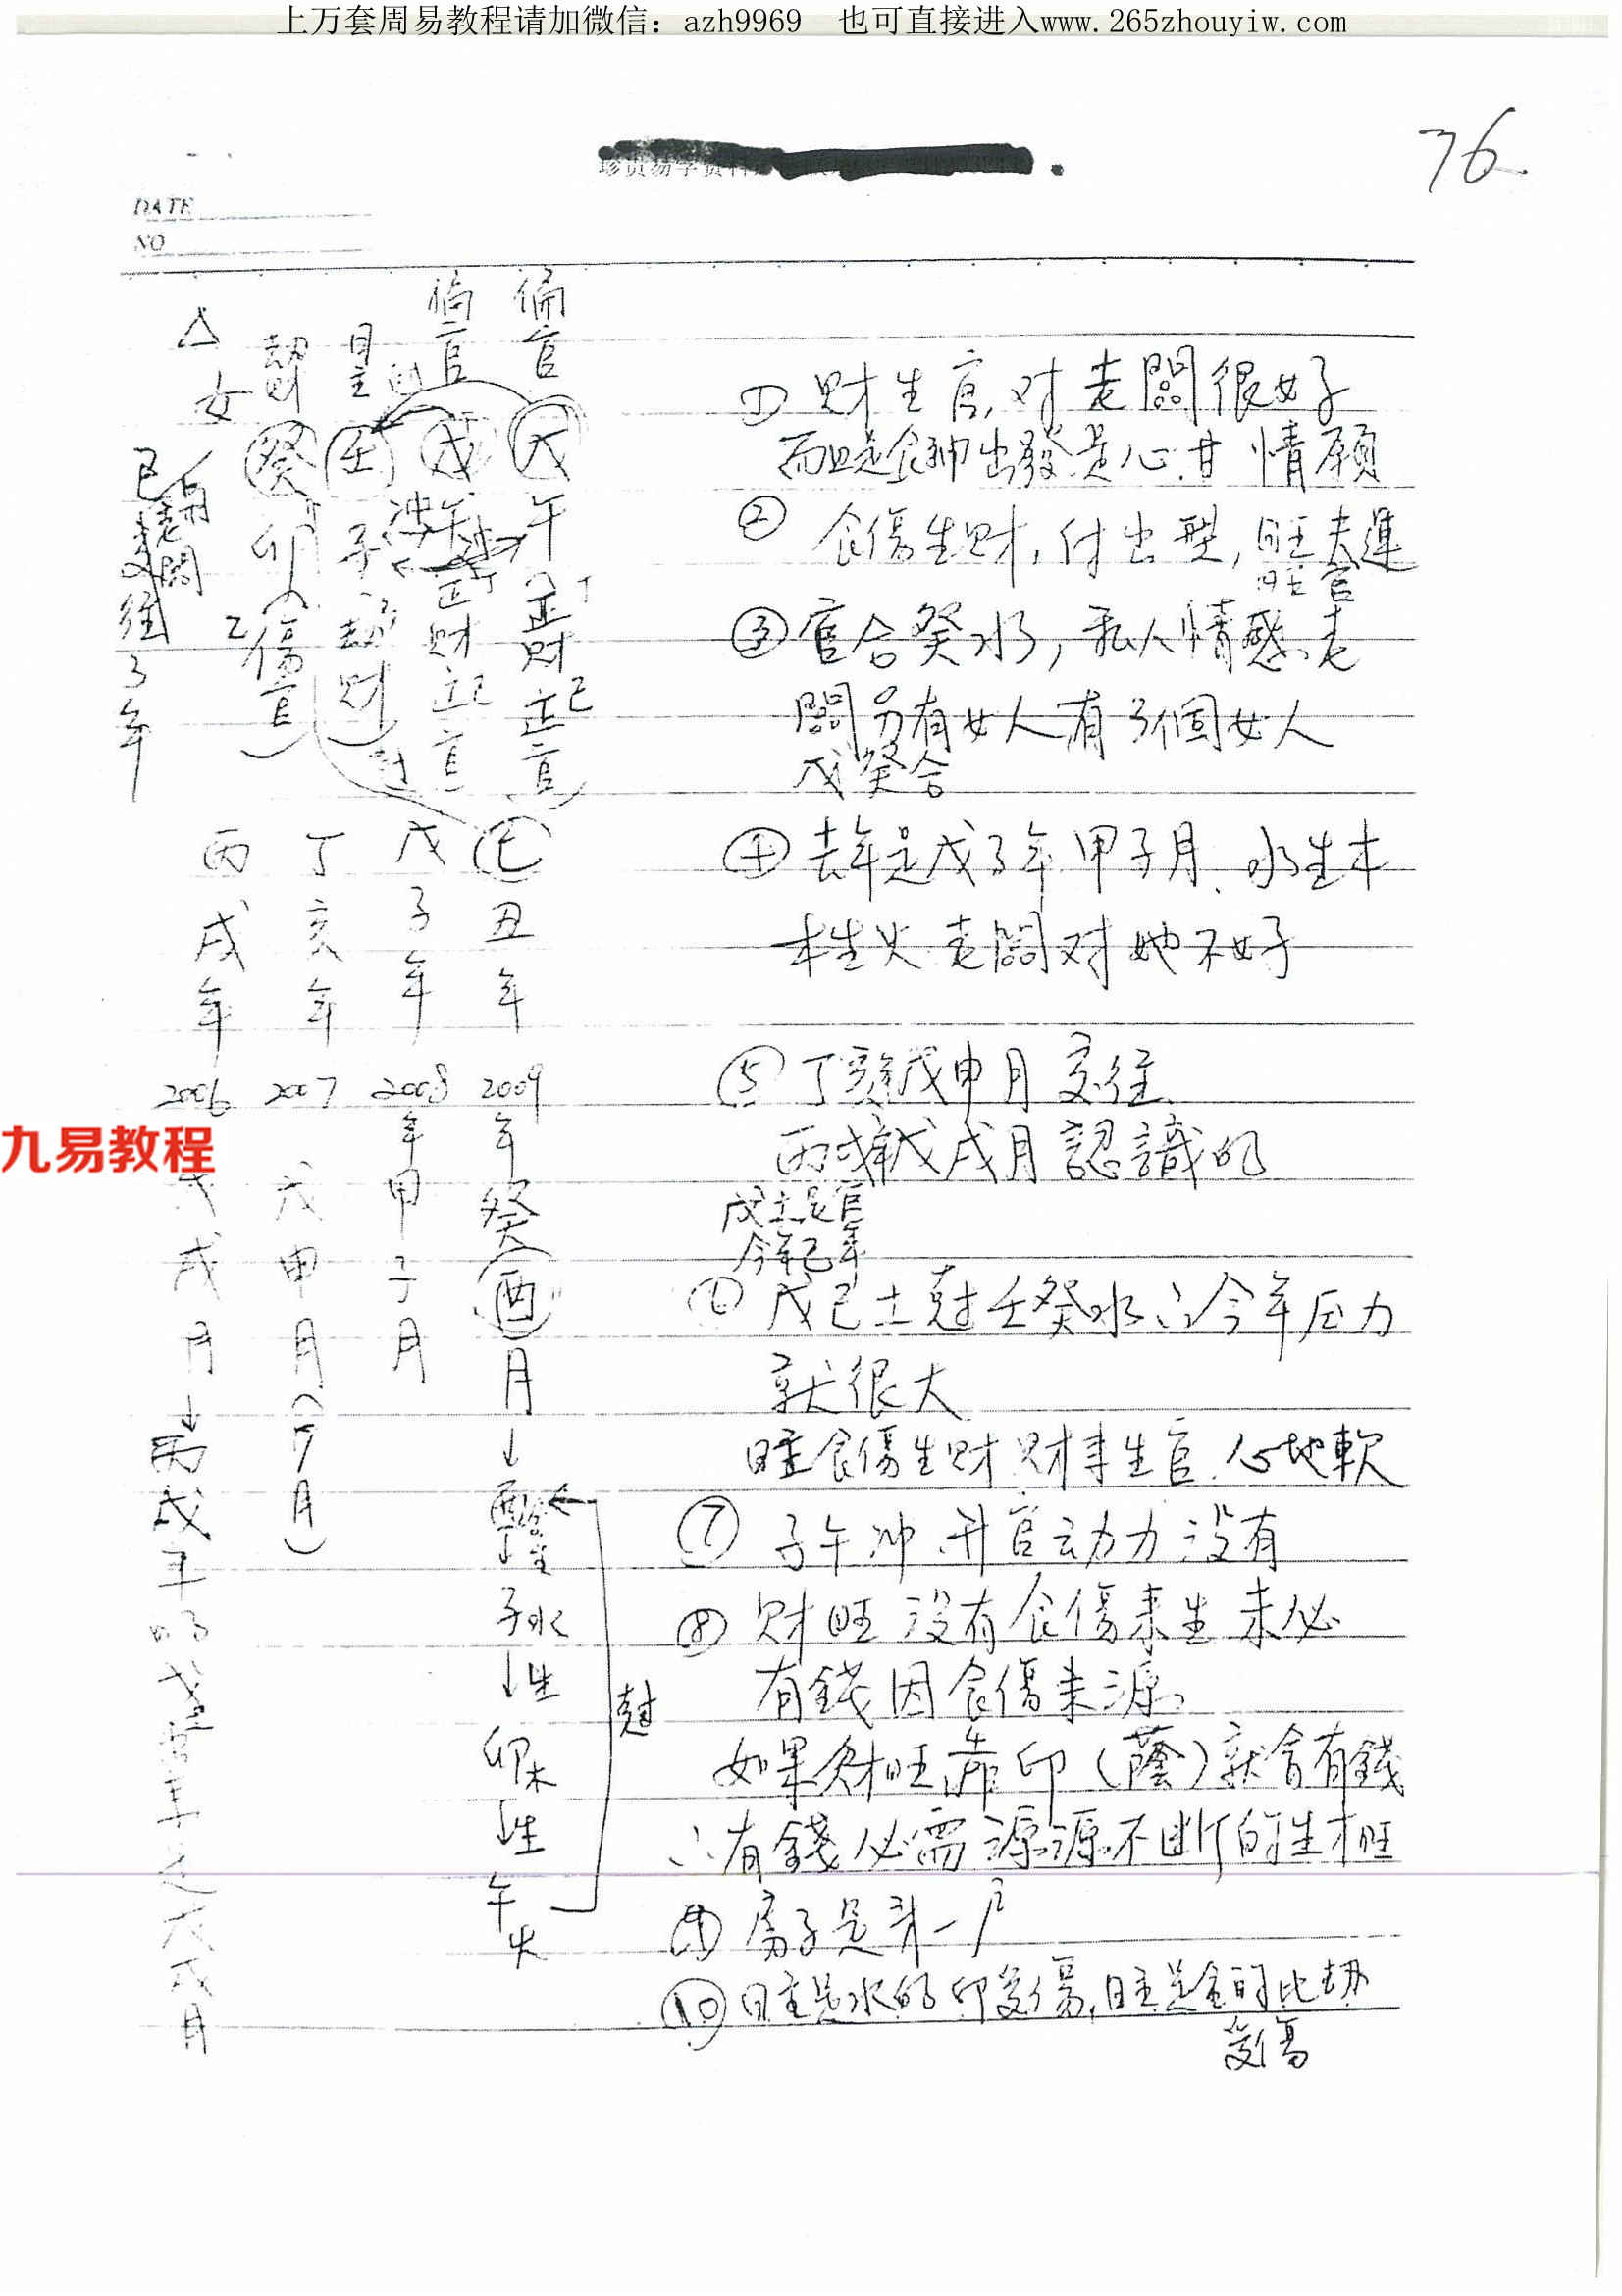 上万套周易教程请加微信：azh9969　也可直接进入www.265zhouyiw.com
76
DATE
NO
① 財生官,对老闆很好
而且是食神出發是心甘情願
② 食傷生財,付出型,旺夫運
旺官
③ 官合癸水,私人情感,老
闆另有女人有3個女人
戊癸合
④ 去年是戊子年甲子月.水生木
木生火 老闆对她不好
⑤ 丁亥年戊申月 交往
丙戌年戊戌月認識的
戊土是官
今年己年
⑥ 戊己土剋壬癸水∴今年压力
就很大
日主食傷生財 財來生官.心地軟
⑦ 子午冲.升官动力没有
⑧ 財旺没有食傷來生未必
有錢因食傷來源.
如果財旺靠印(蔭)就會有錢
∴有錢必需源源不断的生財旺
⑨ 房子是第一戶
⑩ 日主是水的印受傷,日主是金的比劫
受傷
偏官
戊
午
(丁正財
己正官)
偏官
戊
午
丁正財
己正官
日主
壬
子
劫財
劫財
癸
卯
乙(傷官)
△
女
已交往3年
老闆
己丑年
2009年
癸酉月
子水
↓生
卯木
↓生
午火
剋
戊子年
2008年
甲子月
丁亥年
2007
戊申月
(7月)
丙戌年
2006
戊戌月
九易教程